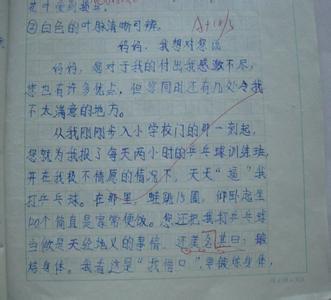 ②白色的叶脉清晰可辨。
妈妈，我想对您说
妈妈，您对于我的付出我感激不尽，
您也有许多优点，但您同时还有几处令我
不太满意的地方。
从我刚刚步入小学校门的那一刻起，
您就为我报了每天两小时的乒乓球训练班，
并在我极不情愿的情况下，天天“逼”我
打乒乓球。在那里，蛙跳15圈，仰卧起坐
100个简直是家常便饭。您还把我打乒乓球
当做是天经地义的事情，还美名其曰：锻
炼身体，我看这是“我借口”，要锻炼身体，